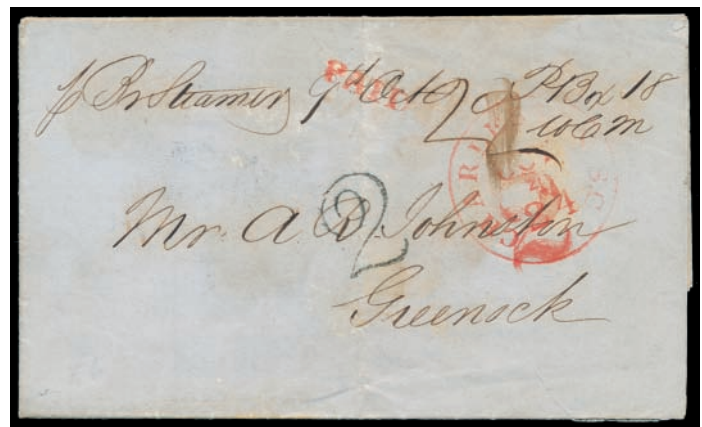 p Br Steamer 9th Oct 2 P. Box 18
W C M
PAID
2
Mr. A D. Johnston
Greenock